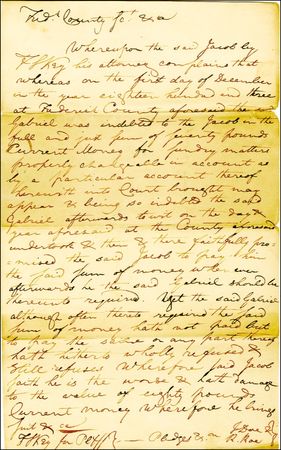 Fred.k County Sc.t Exa
Whereupon the said Jacob by
F S Key his attorney complains that
whereas on the first day of December
in the year eighteen hundred and three
at Frederick County aforesaid the said
Gabriel was indebted to the Jacob in the
full and just sum of seventy pounds
Current Money for sundry matters
properly chargeable in account as
by a particular account thereof
herewith into Court brought may
appear & being so indebted the said
Gabriel afterwards to wit on the day &
year aforesaid at the County aforesaid
undertook & then & there faithfully pro-
mised the said Jacob to pay him
the said sum of money when ever
afterwards he the said Gabriel should be
thereunto required Yet the said Gabriel
altho oft after thereto required the said
sum of money hath not paid but
to pay the same or any part thereof
hath hitherto wholly refused &
still refuses Wherefore said Jacob
saith he is the worse & hath damage
to the value of eighty pounds
Current money wherefore he brings
suit &ca
F S Key for Plff Pledges &ca J Doe &
R Roe